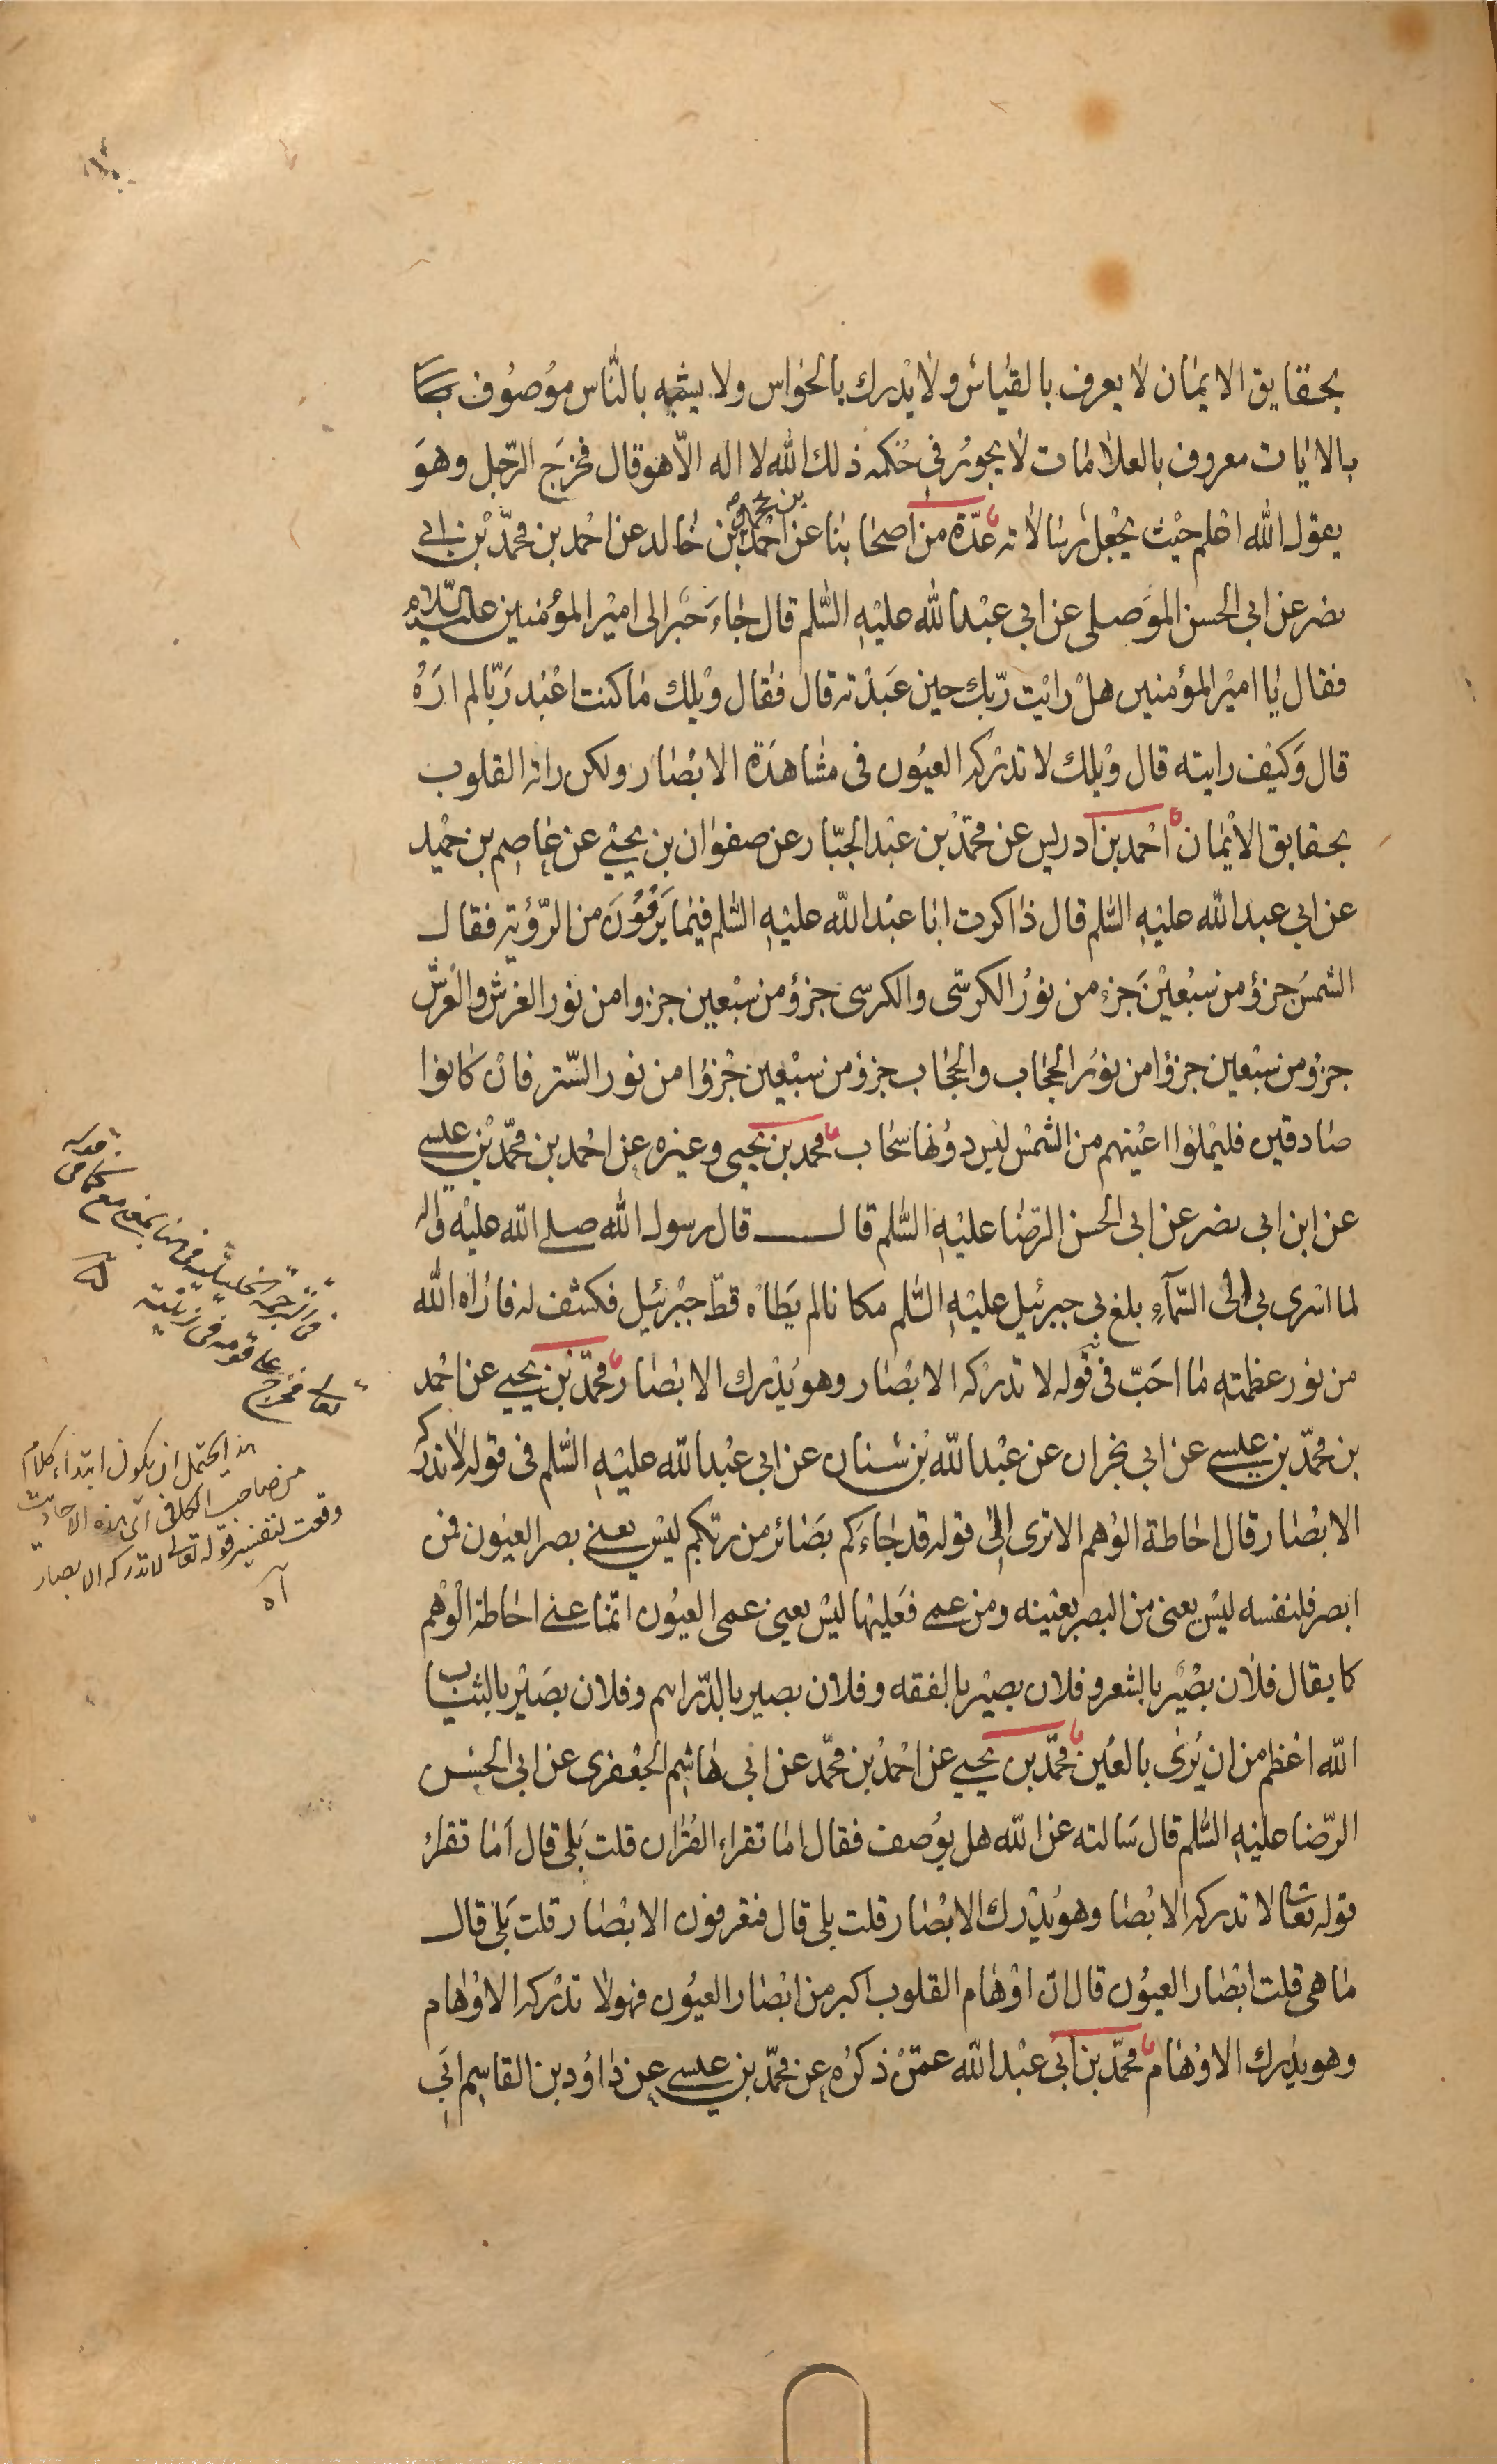 بحقايق الايمان لا يعرف بالقياس ولا يدرك بالحواس ولا يشبه بالناس موصوف
بالايات معروف بالعلامات لا يجور في حكمه ذلك الله لا اله الا هو قال فخرج الرجل وهو
يقول الله اعلم حيث يجعل رسالاته عدة من اصحابنا عن احمد بن محمد بن خالد عن احمد بن محمد بن ابي
نصر عن ابي الحسن الموصلي عن ابي عبد الله عليه السلم قال جاء حبر الى امير المؤمنين عليه السلام
فقال يا امير المؤمنين هل رايت ربك حين عبدته قال فقال ويلك ما كنت اعبد ربا لم اره
قال وكيف رايته قال ويلك لا تدركه العيون في مشاهدة الابصار ولكن راته القلوب
بحقايق الايمان احمد بن ادريس عن محمد بن عبد الجبار عن صفوان بن يحيى عن عاصم بن حميد
عن ابي عبد الله عليه السلم قال ذاكرت ابا عبد الله عليه السلم فيما يروون من الرؤية فقال
الشمس جزؤ من سبعين جزء من نور الكرسي والكرسي جزؤ من سبعين جزوا من نور العرش والعرش
جزؤ من سبعين جزؤا من نور الحجاب والحجاب جزؤ من سبعين جزؤا من نور الستر فان كانوا
صادقين فليملوا اعينهم من الشمس ليس دونها سحاب محمد بن يحيى وغيره عن احمد بن محمد بن عيسى
عن ابن ابي نصر عن ابي الحسن الرضا عليه السلم قال قال رسول الله صلى الله عليه واله
لما اسرى بي الى السماء بلغ بي جبرئيل عليه السلم مكانا لم يطاه قط جبرئيل فكشف له فاراه الله
من نور عظمته ما احب في قوله لا تدركه الابصار وهو يدرك الابصار محمد بن يحيى عن احمد
بن محمد بن عيسى عن ابي نجران عن عبد الله بن سنان عن ابي عبد الله عليه السلم في قوله لا تدركه
الابصار قال احاطة الوهم الا ترى الى قوله قد جاءكم بصائر من ربكم ليس يعني بصر العيون فمن
ابصر فلنفسه ليس يعنى من البصر بعينه ومن عمي فعليها ليس يعنى عمى العيون انما عنى احاطة الوهم
كما يقال فلان بصير بالشعر وفلان بصير بالفقه وفلان بصير بالدراهم وفلان بصير بالثياب
الله اعظم من ان يرى بالعين محمد بن يحيى عن احمد بن محمد عن ابي هاشم الجعفري عن ابي الحسن
الرضا عليه السلم قال سالته عن الله هل يوصف فقال اما تقراء القران قلت بلى قال اما تقرا
قوله تعالى لا تدركه الابصا وهو يدرك الابصار قلت بلى قال فتعرفون الابصار قلت بلى قال
ما هي قلت ابصار العيون قال ان اوهام القلوب اكبر من ابصار العيون فهو لا تدركه الاوهام
وهو يدرك الاوهام محمد بن ابي عبد الله عمن ذكره عن محمد بن عيسى عن داود بن القاسم ابي
فخرج على قومه في زينته
هذا يحتمل ان يكون ابتداء كلام
من صاحب الكافي اى هذه الاحاديث
وقعت لتفسير قوله تعالى لا تدركه الابصار
آه